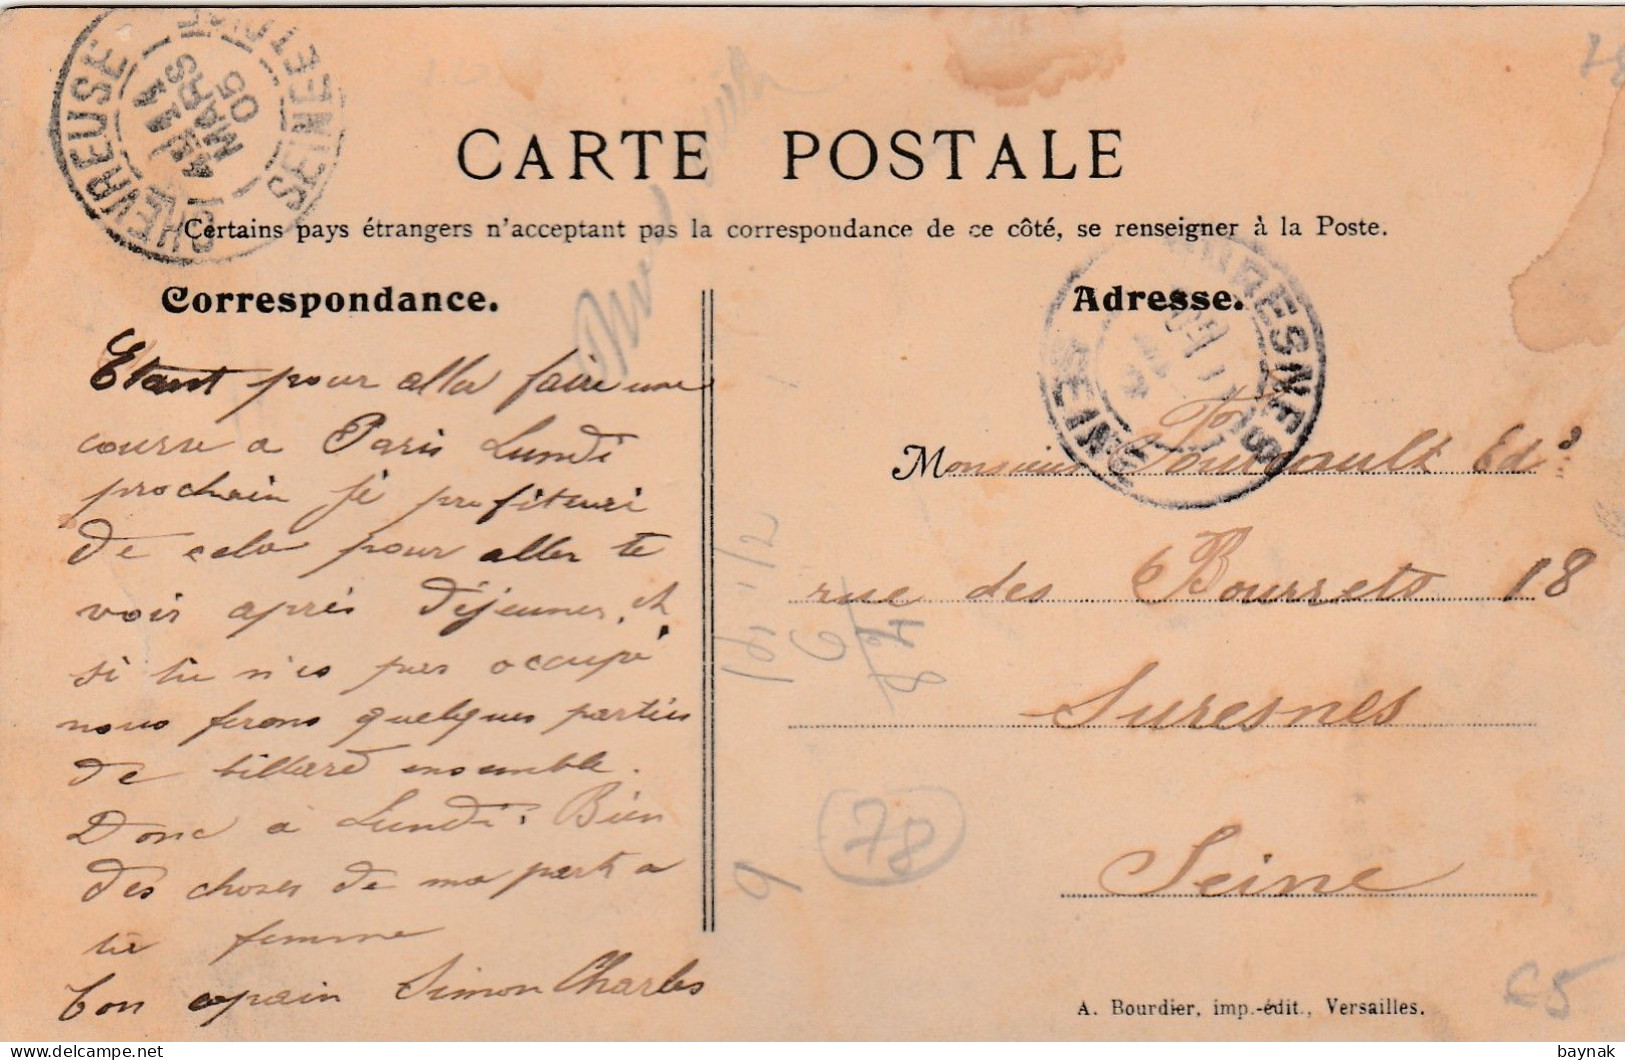 CHEVREUSE
SEINE ET OISE
11
MARS
05
CARTE POSTALE
Certains pays étrangers n'acceptent pas la correspondance de ce côté, se renseigner à la Poste.
Correspondance.
Etant pour aller faire une
course a Paris Lundi
prochain je profiterai
de cela pour aller te
voir après déjeuner, et
si tu n'es pas occupé
nous ferons quelques parties
de billard ensemble.
Donc à Lundi. Bien
des choses de ma part a
ta femme
Ton copain Simon Charles
Adresse.
SURESNES
SEINE
Monsieur Ed
rue des Bourrets 18
Suresnes
Seine
78
9
€5
A. Bourdier, imp.-édit., Versailles.
baynak